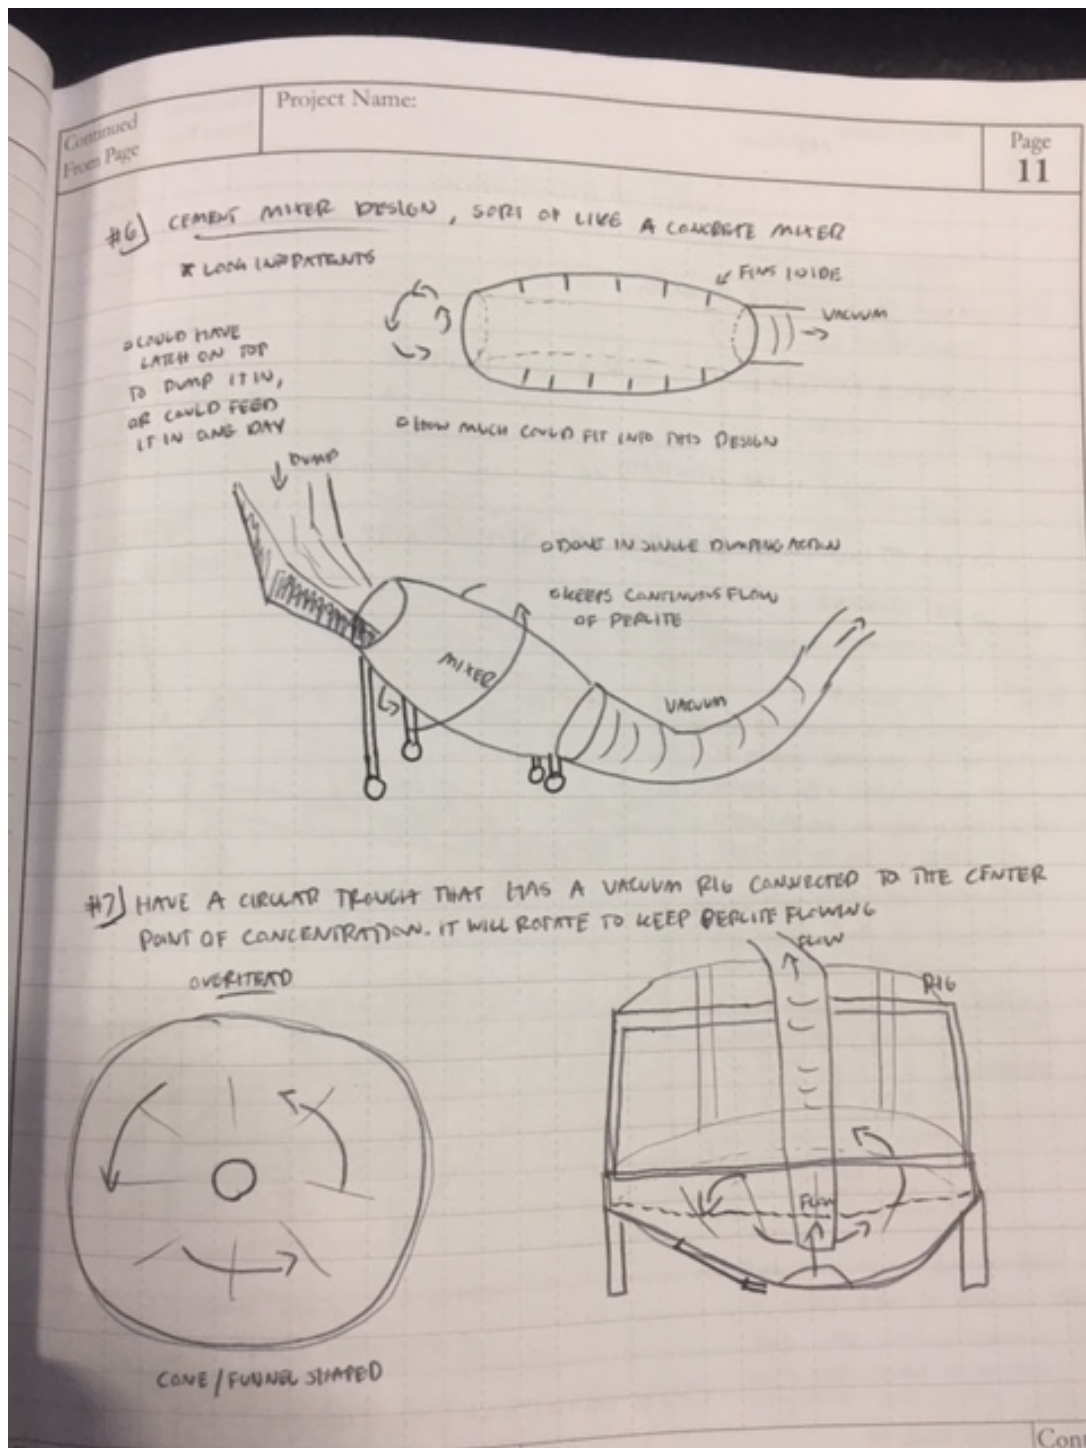 Continued
From Page
Project Name:
Page
11
#6) CEMENT MIXER DESIGN, SORT OF LIKE A CONCRETE MIXER
* LOOK INTO PATENTS
FINS INSIDE
VACUUM
o COULD HAVE
LATCH ON TOP
TO DUMP IT IN,
OR COULD FEED
IT IN ONE DAY
o HOW MUCH COULD FIT INTO THIS DESIGN
DUMP
o DONE IN SINGLE DUMPING ACTION
o KEEPS CONTINUOUS FLOW
OF PERLITE
MIXER
VACUUM
#7) HAVE A CIRCULAR TROUGH THAT HAS A VACUUM RIG CONNECTED TO THE CENTER
POINT OF CONCENTRATION. IT WILL ROTATE TO KEEP PERLITE FLOWING
OVERHEAD
FLOW
RIG
FLOW
CONE/FUNNEL SHAPED